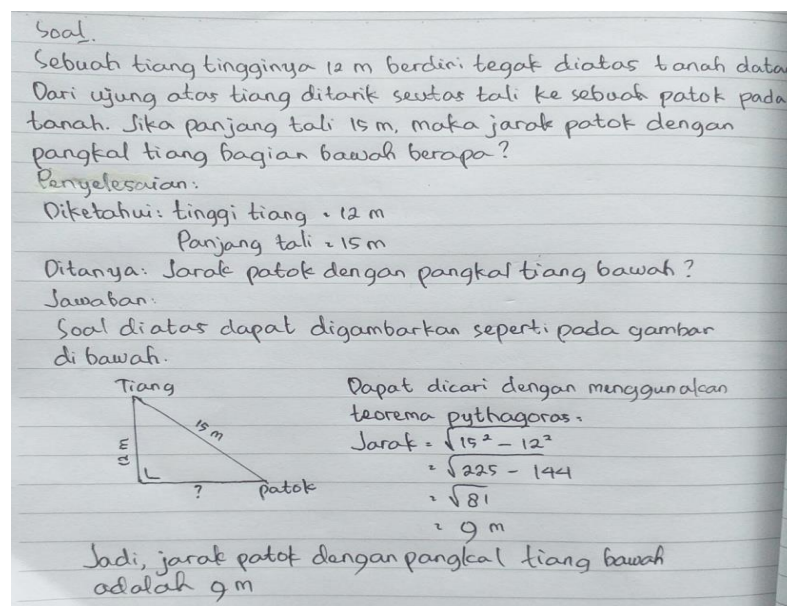 Soal.
Sebuah tiang tingginya 12 m berdiri tegak diatas tanah data
Dari ujung atas tiang ditarik seutas tali ke sebuah patok pada
tanah. Jika panjang tali 15 m, maka jarak patok dengan
pangkal tiang bagian bawah berapa?
Penyelesaian:
Diketahui: tinggi tiang = 12 m
Panjang tali = 15 m
Ditanya: Jarak patok dengan pangkal tiang bawah?
Jawaban:
Soal diatas dapat digambarkan seperti pada gambar
di bawah.
Tiang
15 m
12 m
?
patok
Dapat dicari dengan menggunakan
teorema pythagoras.
Jarak = √15² - 12²
= √225 - 144
= √81
= 9 m
Jadi, jarak patok dengan pangkal tiang bawah
adalah 9 m